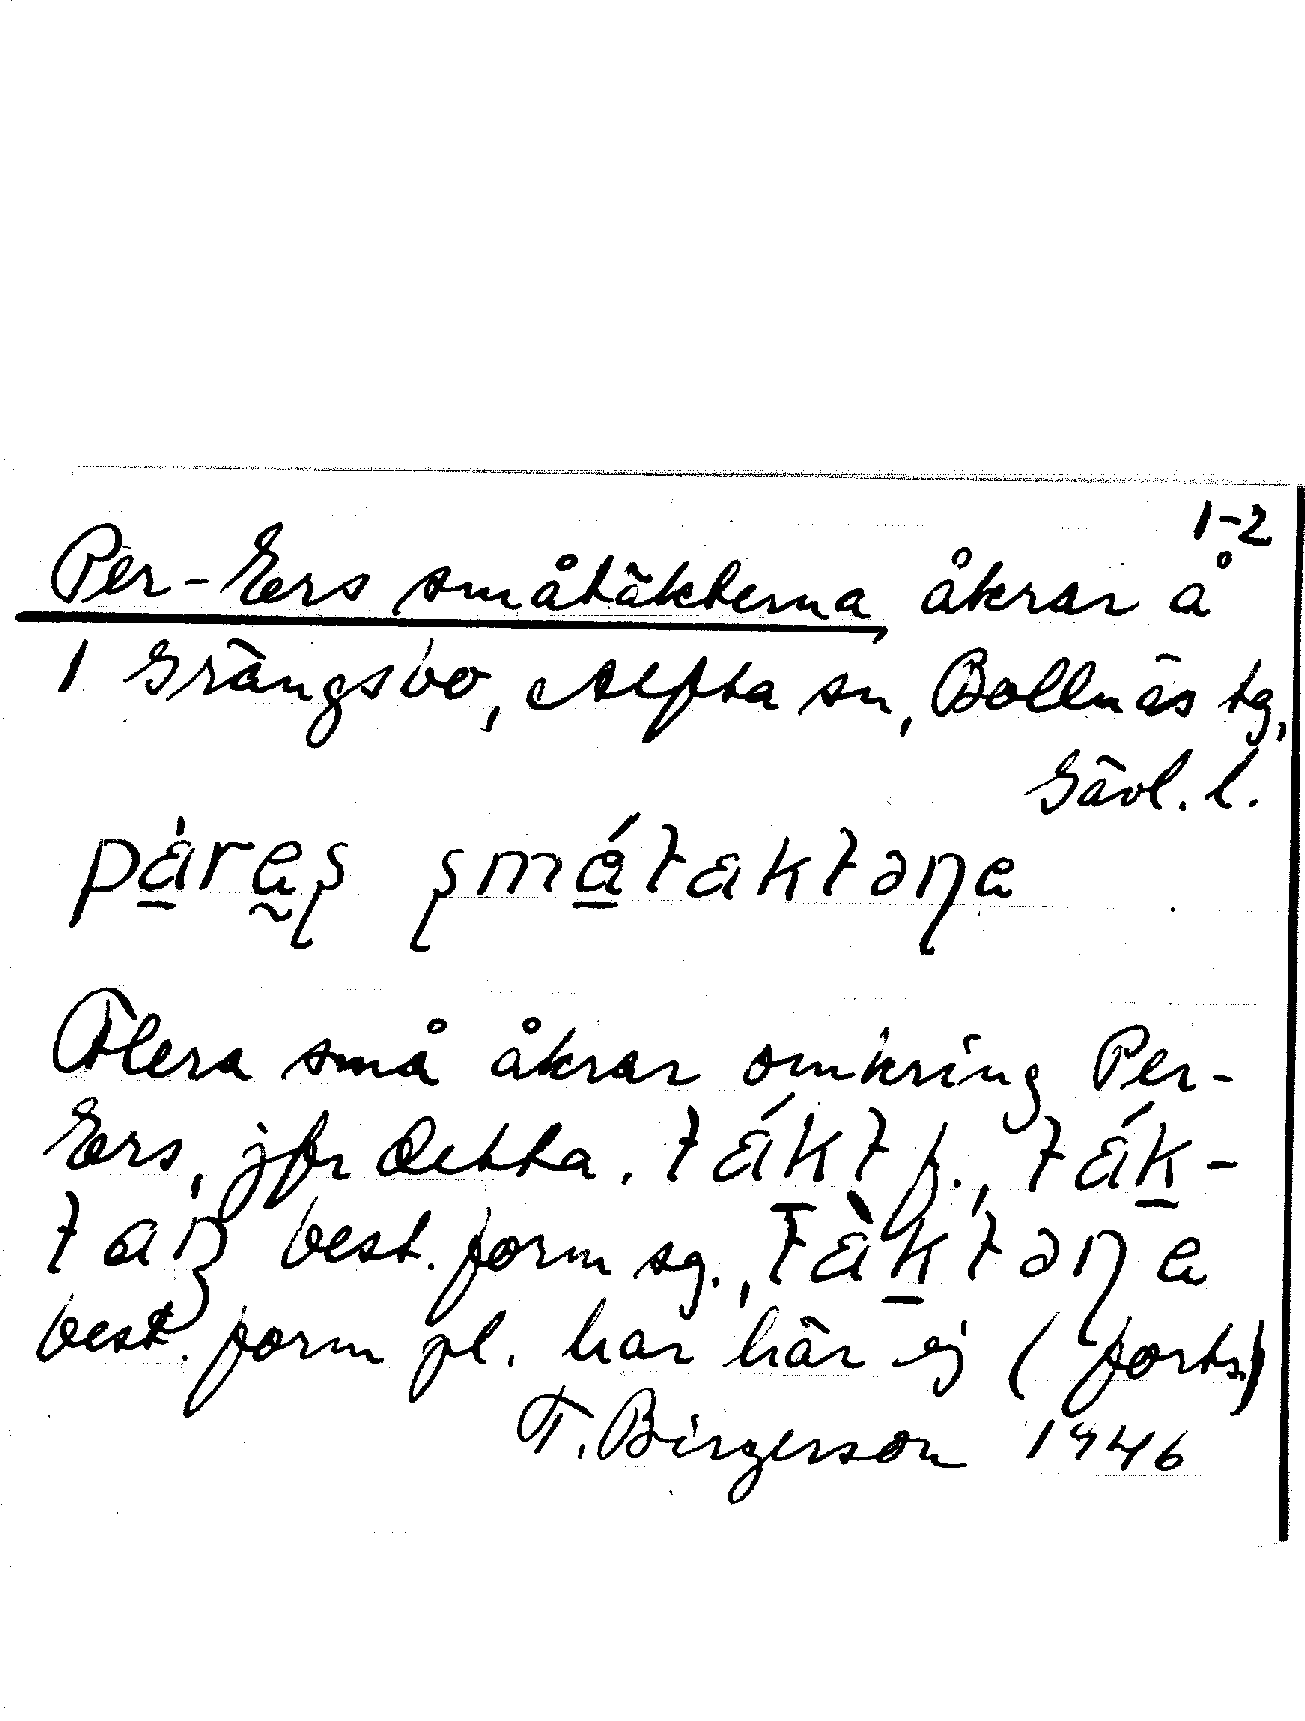 1-2
Per-Ers småtäkterna, åkrar å
1 Grängsbo, Alfta sn, Bollnäs tg,
Gävl. l.
Flera små åkrar omkring Per-
Ers, jfr detta. táktf., ták-
best. form sg.,
best. form pl. har här ej (forts.)
T. Birgerson 1946